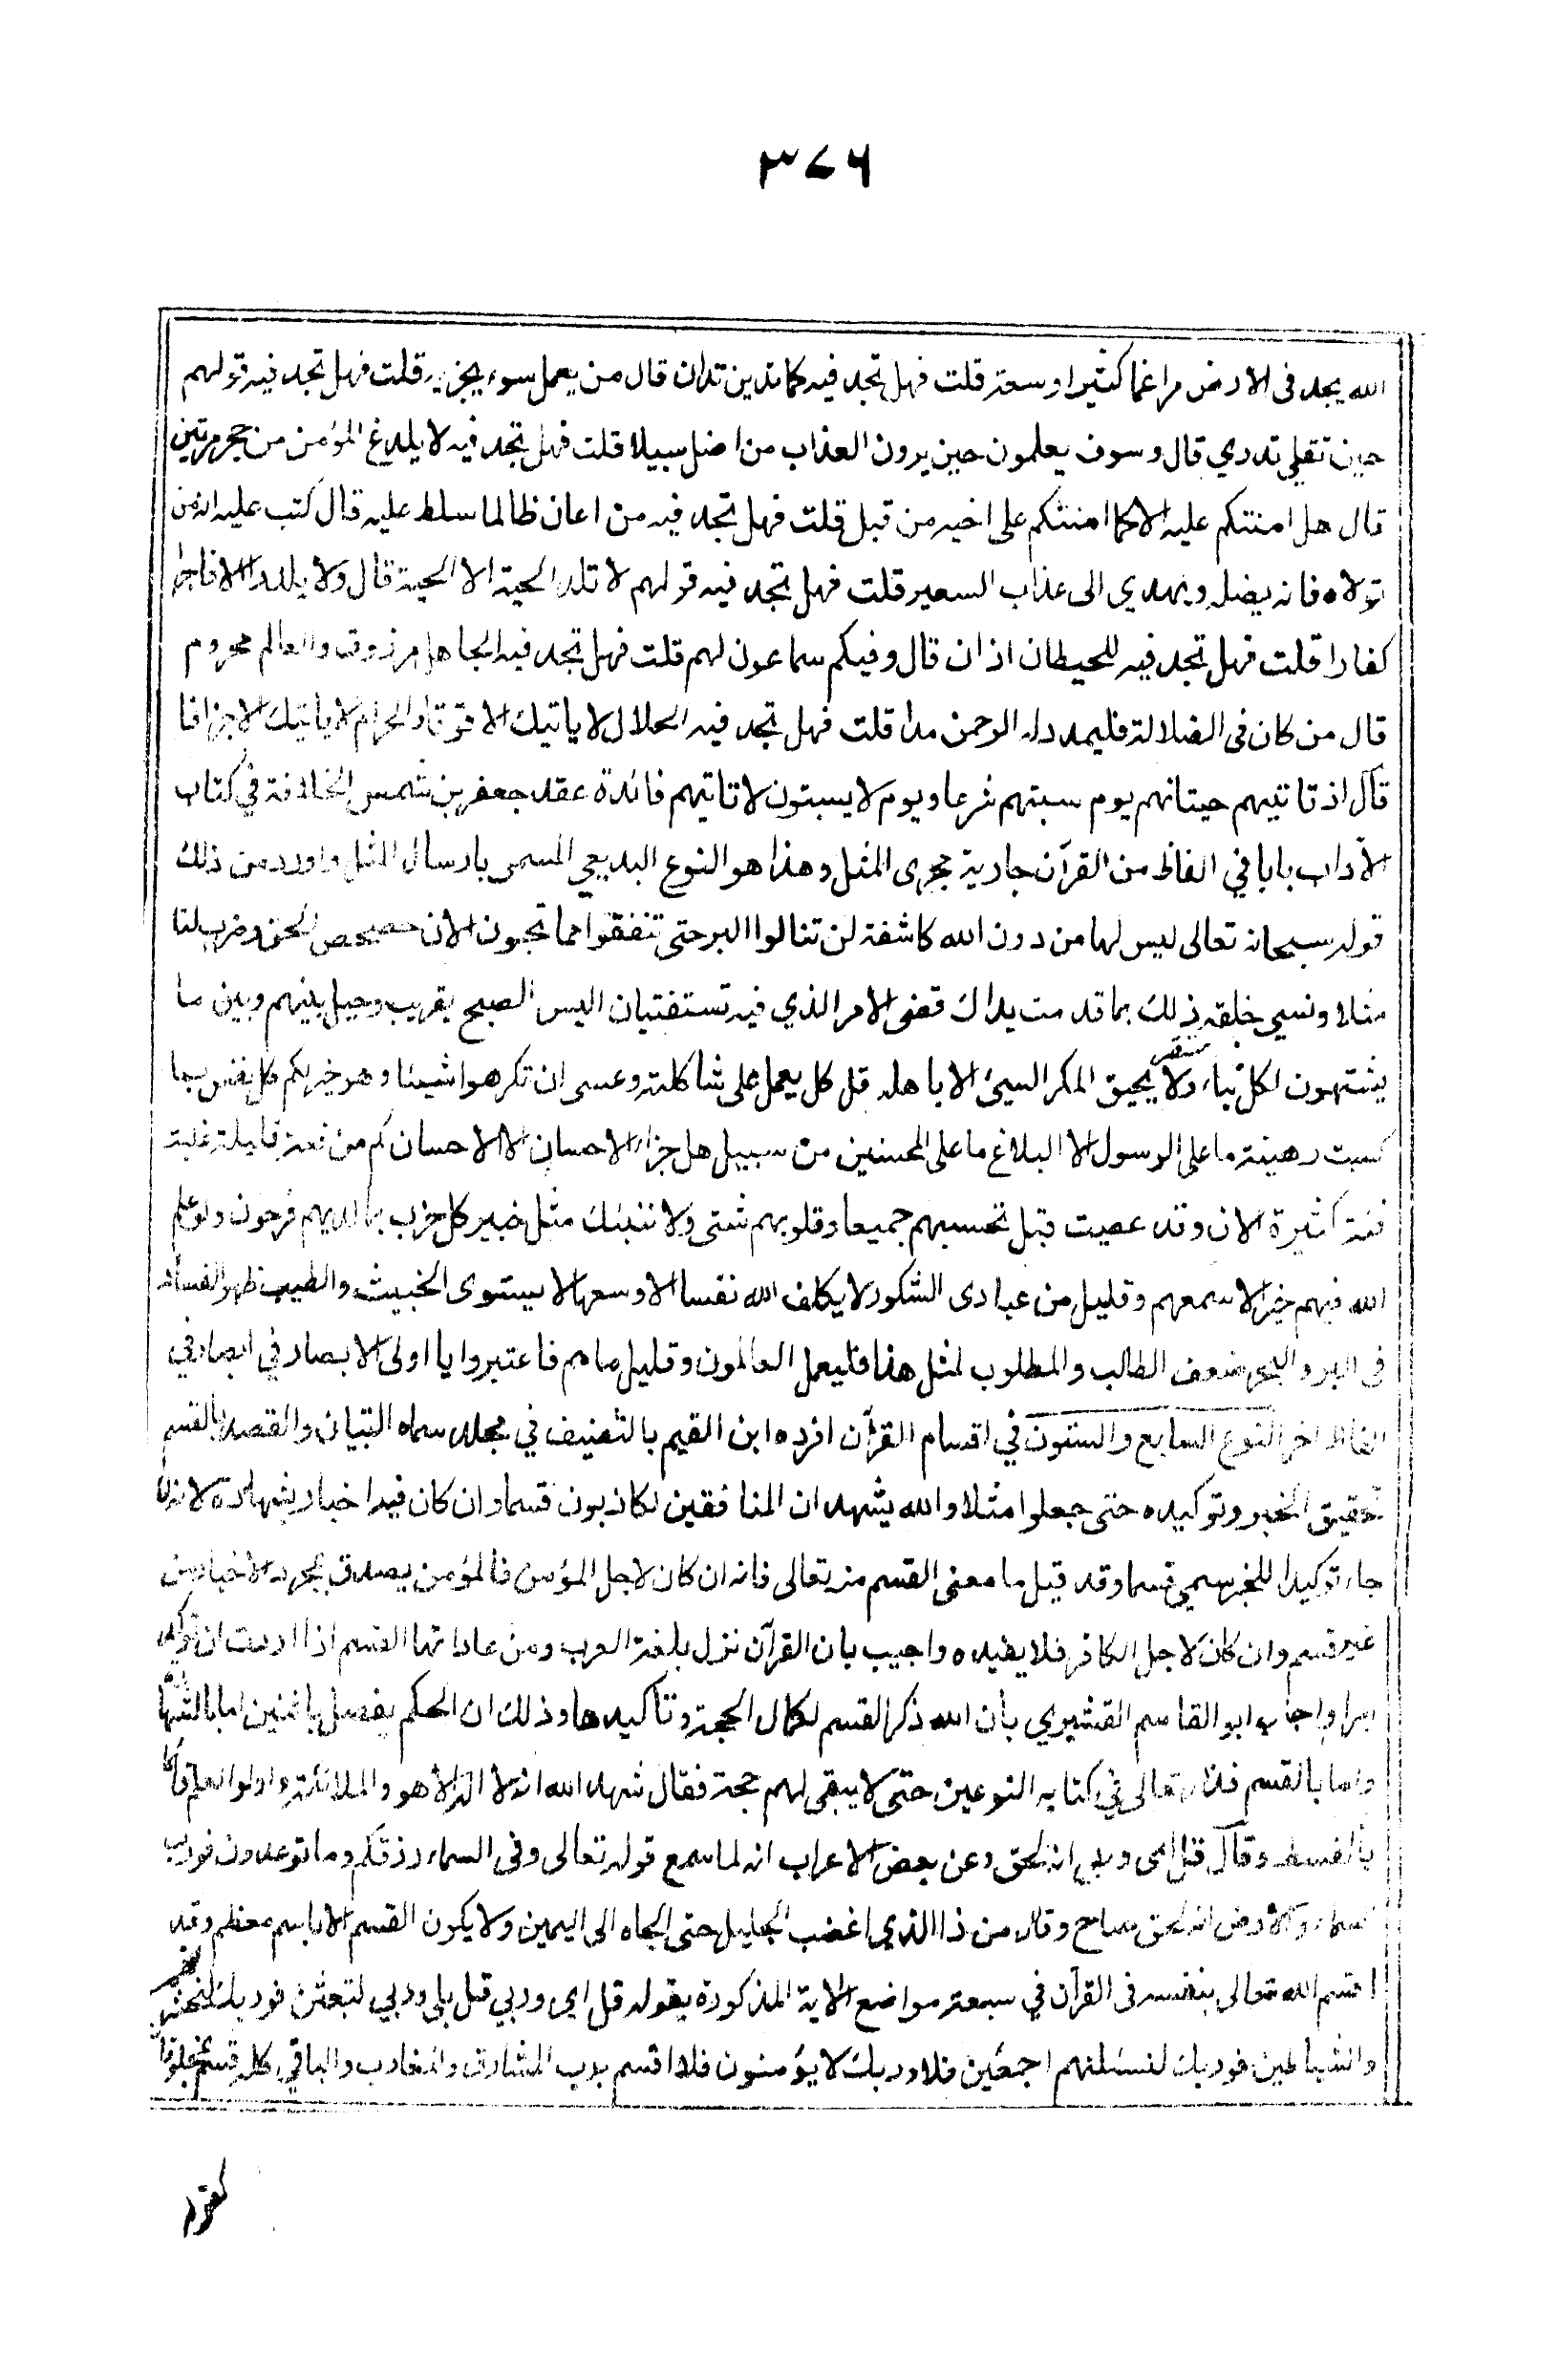 ٣٧٦
الله يجد فى الارض مراغما كثيرا وسعة قلت فهل تجد فيه كما تدين تدان قال من يعمل سوء يجز به قلت فهل تجد فيه قولهم
حين تقلي تدري قال وسوف يعلمون حين يرون العذاب من اضل سبيلا قلت فهل تجد فيه لا يلدغ المؤمن من جحر مرتين
قال هل امنتكم عليه الا كما امنتكم على اخيه من قبل قلت فهل تجد فيه من اعان ظالما سلط عليه قال كتب عليه انه من
تولاه فانه يضله ويهدي الى عذاب السعير قلت فهل تجد فيه قولهم لا تلد الحية الا الحية قال ولا يلدوا الا فاجرا
كفارا قلت فهل تجد فيه للحيطان اذان قال وفيكم سماعون لهم قلت فهل تجد فيه الجاهل مرزوق والعالم محروم
قال من كان فى الضلالة فليمدد له الرحمن مدا قلت فهل تجد فيه الحلال لا ياتيك الا قوتا والحرام لا ياتيك الا جزافا
قال اذ تاتيهم حيتانهم يوم سبتهم شرعا ويوم لا يسبتون لا تاتيهم فائدة عقد جعفر بن شمس الخلافة في كتاب
الآداب بابا في الفاظ من القرآن جارية مجرى المثل وهذا هو النوع البديعي المسمى بارسال المثل واورد من ذلك
قوله سبحانه تعالى ليس لها من دون الله كاشفة لن تنالوا البر حتى تنفقوا مما تحبون الان حصحص الحق وضرب لنا
مثلا ونسي خلقه ذلك بما قدمت يداك قضى الامر الذي فيه تستفتيان اليس الصبح بقريب وحيل بينهم وبين ما
يشتهون لكل نباء مستقر ولا يحيق المكر السيئ الا باهله قل كل يعمل على شاكلته وعسى ان تكرهوا شيئا وهو خير لكم كل نفس بما
كسبت رهينة ما على الرسول الا البلاغ ما على المحسنين من سبيل هل جزاء الاحسان الا الاحسان كم من فئة قليلة غلبت
فئة كثيرة الان وقد عصيت قبل تحسبهم جميعا وقلوبهم شتى ولا ننبئك مثل خبير كل حزب بما لديهم فرحون ولو علم
الله فيهم خيرا لاسمعهم وقليل من عبادى الشكور لا يكلف الله نفسا الا وسعها لا يستوى الخبيث والطيب ظهر الفساد
فى البر والبحر ضعف الطالب والمطلوب لمثل هذا فليعمل العاملون وقليل ما هم فاعتبروا يا اولى الابصار في ابصار في
الفاظ اخر النوع السابع والستون في اقسام القرآن افرده ابن القيم بالتصنيف في مجلد سماه التبيان والقصد بالقسم
تحقيق الخبر وتوكيده حتى جعلوا مثلا والله يشهد ان المنافقين لكاذبون قسما وان كان فيه اخبار بشهادة لانه لما
جاء توكيدا للخبر سمي قسما وقد قيل ما معنى القسم منه تعالى فانه ان كان لاجل المؤمن فالمؤمن يصدق بمجرد الاخبار من
غير قسم وان كان لاجل الكافر فلا يفيده واجيب بان القرآن نزل بلغة العرب ومن عاداتها القسم اذا اردت ان توكد
امرا واجاب ابو القاسم القشيري بأن الله ذكر القسم لكمال الحجة وتأكيدها وذلك ان الحكم يفصل باثنين اما بالشهادة
واما بالقسم فذكر تعالى في كتابه النوعين حتى لا يبقى لهم حجة فقال شهد الله انه لا اله الا هو والملائكة واولوا العلم قائما
بالقسط وقال قل اى وربي انه لحق وعن بعض الاعراب انه لما سمع قوله تعالى وفى السماء رزقكم وما توعدون فورب
السماء والارض انه لحق صاح وقال من ذا الذي اغضب الجليل حتى الجاه الى اليمين ولا يكون القسم الا باسم معظم وقد
اقسم الله تعالى بنفسه فى القرآن في سبعة مواضع الاية المذكورة بقوله قل اى وربي قل بلى وربي لتبعثن فوربك لنحشرنهم
والشياطين فوربك لنسئلنهم اجمعين فلا وربك لا يؤمنون فلا اقسم برب المشارق والمغارب والباقي كله قسم بمخلوقاته
كقوله